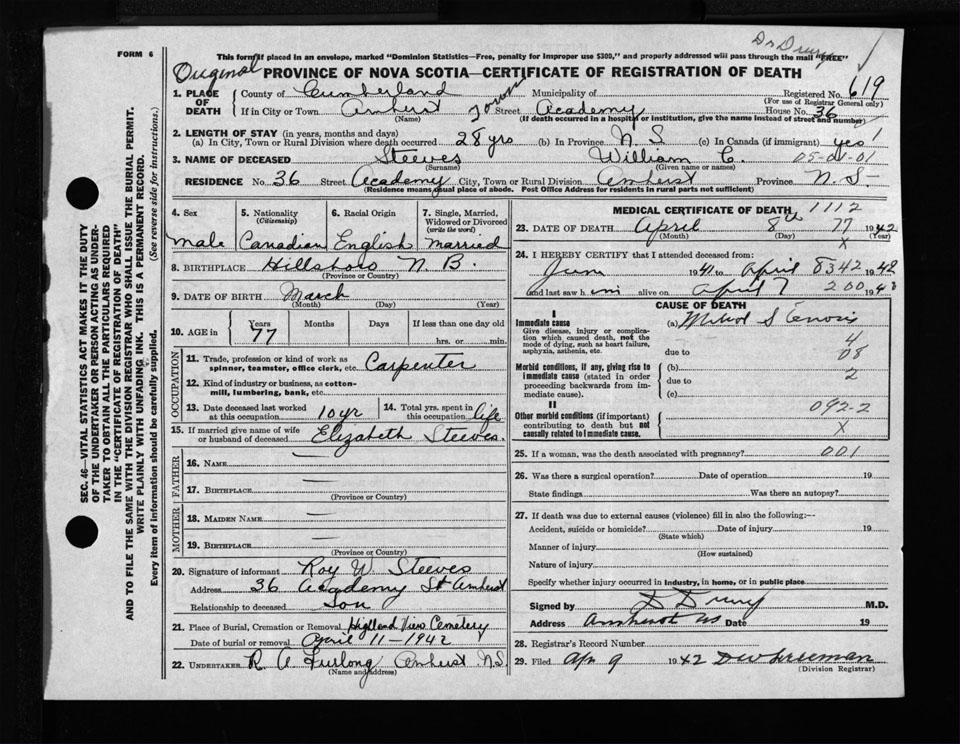 Dr Drury
FORM 6
This form if placed in an envelope, marked "Dominion Statistics—Free, penalty for improper use $300," and properly addressed will pass through the mail "FREE"
Original PROVINCE OF NOVA SCOTIA—CERTIFICATE OF REGISTRATION OF DEATH
1. PLACE OF DEATH County of Cumberland Municipality of Registered No. 619
(For use of Registrar General only)
If in City or Town Amherst Town Street Academy House No. 36
(Name) (If death occurred in a hospital or institution, give the name instead of street and number)
2. LENGTH OF STAY (in years, months and days)
(a) In City, Town or Rural Division where death occurred 28 yrs (b) In Province N. S (c) In Canada (if immigrant) yes 1
3. NAME OF DECEASED Steeves William C. 05-01-01
(Surname) (Given name or names)
RESIDENCE No. 36 Street Academy City, Town or Rural Division Amherst Province N. S-
(Residence means usual place of abode. Post Office Address for residents in rural parts not sufficient)
4. Sex
male
5. Nationality
(Citizenship)
Canadian
6. Racial Origin
English
7. Single, Married, Widowed or Divorced
(write the word)
married
8. BIRTHPLACE Hillsboro N. B.
(Province or Country)
9. DATE OF BIRTH March
(Month) (Day) (Year)
10. AGE in Years Months Days If less than one day old
77 hrs. or min.
OCCUPATION
11. Trade, profession or kind of work as
spinner, teamster, office clerk, etc. Carpenter
12. Kind of industry or business, as cotton-
mill, lumbering, bank, etc.
13. Date deceased last worked
at this occupation 10 yr
14. Total yrs. spent in
this occupation life
15. If married give name of wife
or husband of deceased Elizabeth Steeves.
FATHER
16. NAME —
17. BIRTHPLACE —
(Province or Country)
MOTHER
18. MAIDEN NAME —
19. BIRTHPLACE —
(Province or Country)
20. Signature of informant Roy W. Steeves
Address 36 Academy St Amherst
Relationship to deceased Son
21. Place of Burial, Cremation or Removal Highland View Cemetery
Date of burial or removal April 11—1942
22. UNDERTAKER R. A. Furlong Amherst N.S.
(Name and address)
MEDICAL CERTIFICATE OF DEATH 1112
23. DATE OF DEATH April 8th 77 1942
(Month) (Day) X (Year)
24. I HEREBY CERTIFY that I attended deceased from:
1941 to April 8 342 1942
and last saw him alive on April 7 200 194
CAUSE OF DEATH
I
Immediate cause
Give disease, injury or complication which caused death, not the mode of dying, such as heart failure, asphyxia, asthenia, etc.
(a) Mitral Stenosis
4
due to 08
Morbid conditions, if any, giving rise to immediate cause (stated in order proceeding backwards from immediate cause).
(b) 2
due to
(c)
II
Other morbid conditions (if important) contributing to death but not causally related to immediate cause.
092-2
X
25. If a woman, was the death associated with pregnancy? 001
26. Was there a surgical operation? Date of operation 19
State findings Was there an autopsy?
27. If death was due to external causes (violence) fill in also the following:—
Accident, suicide or homicide? Date of injury 19
(State which)
Manner of injury
(How sustained)
Nature of injury
Specify whether injury occurred in industry, in home, or in public place
Signed by D Drury M.D.
Address Amherst NS Date 19
28. Registrar's Record Number
29. Filed Apr 9 1942
(Division Registrar)
SEC. 46—VITAL STATISTICS ACT MAKES IT THE DUTY
OF THE UNDERTAKER OR PERSON ACTING AS UNDER-
TAKER TO OBTAIN ALL THE PARTICULARS REQUIRED
IN THE "CERTIFICATE OF REGISTRATION OF DEATH"
AND TO FILE THE SAME WITH THE DIVISION REGISTRAR WHO SHALL ISSUE THE BURIAL PERMIT.
WRITE PLAINLY WITH UNFADING INK. THIS IS A PERMANENT RECORD.
Every item of information should be carefully supplied. (See reverse side for instructions.)